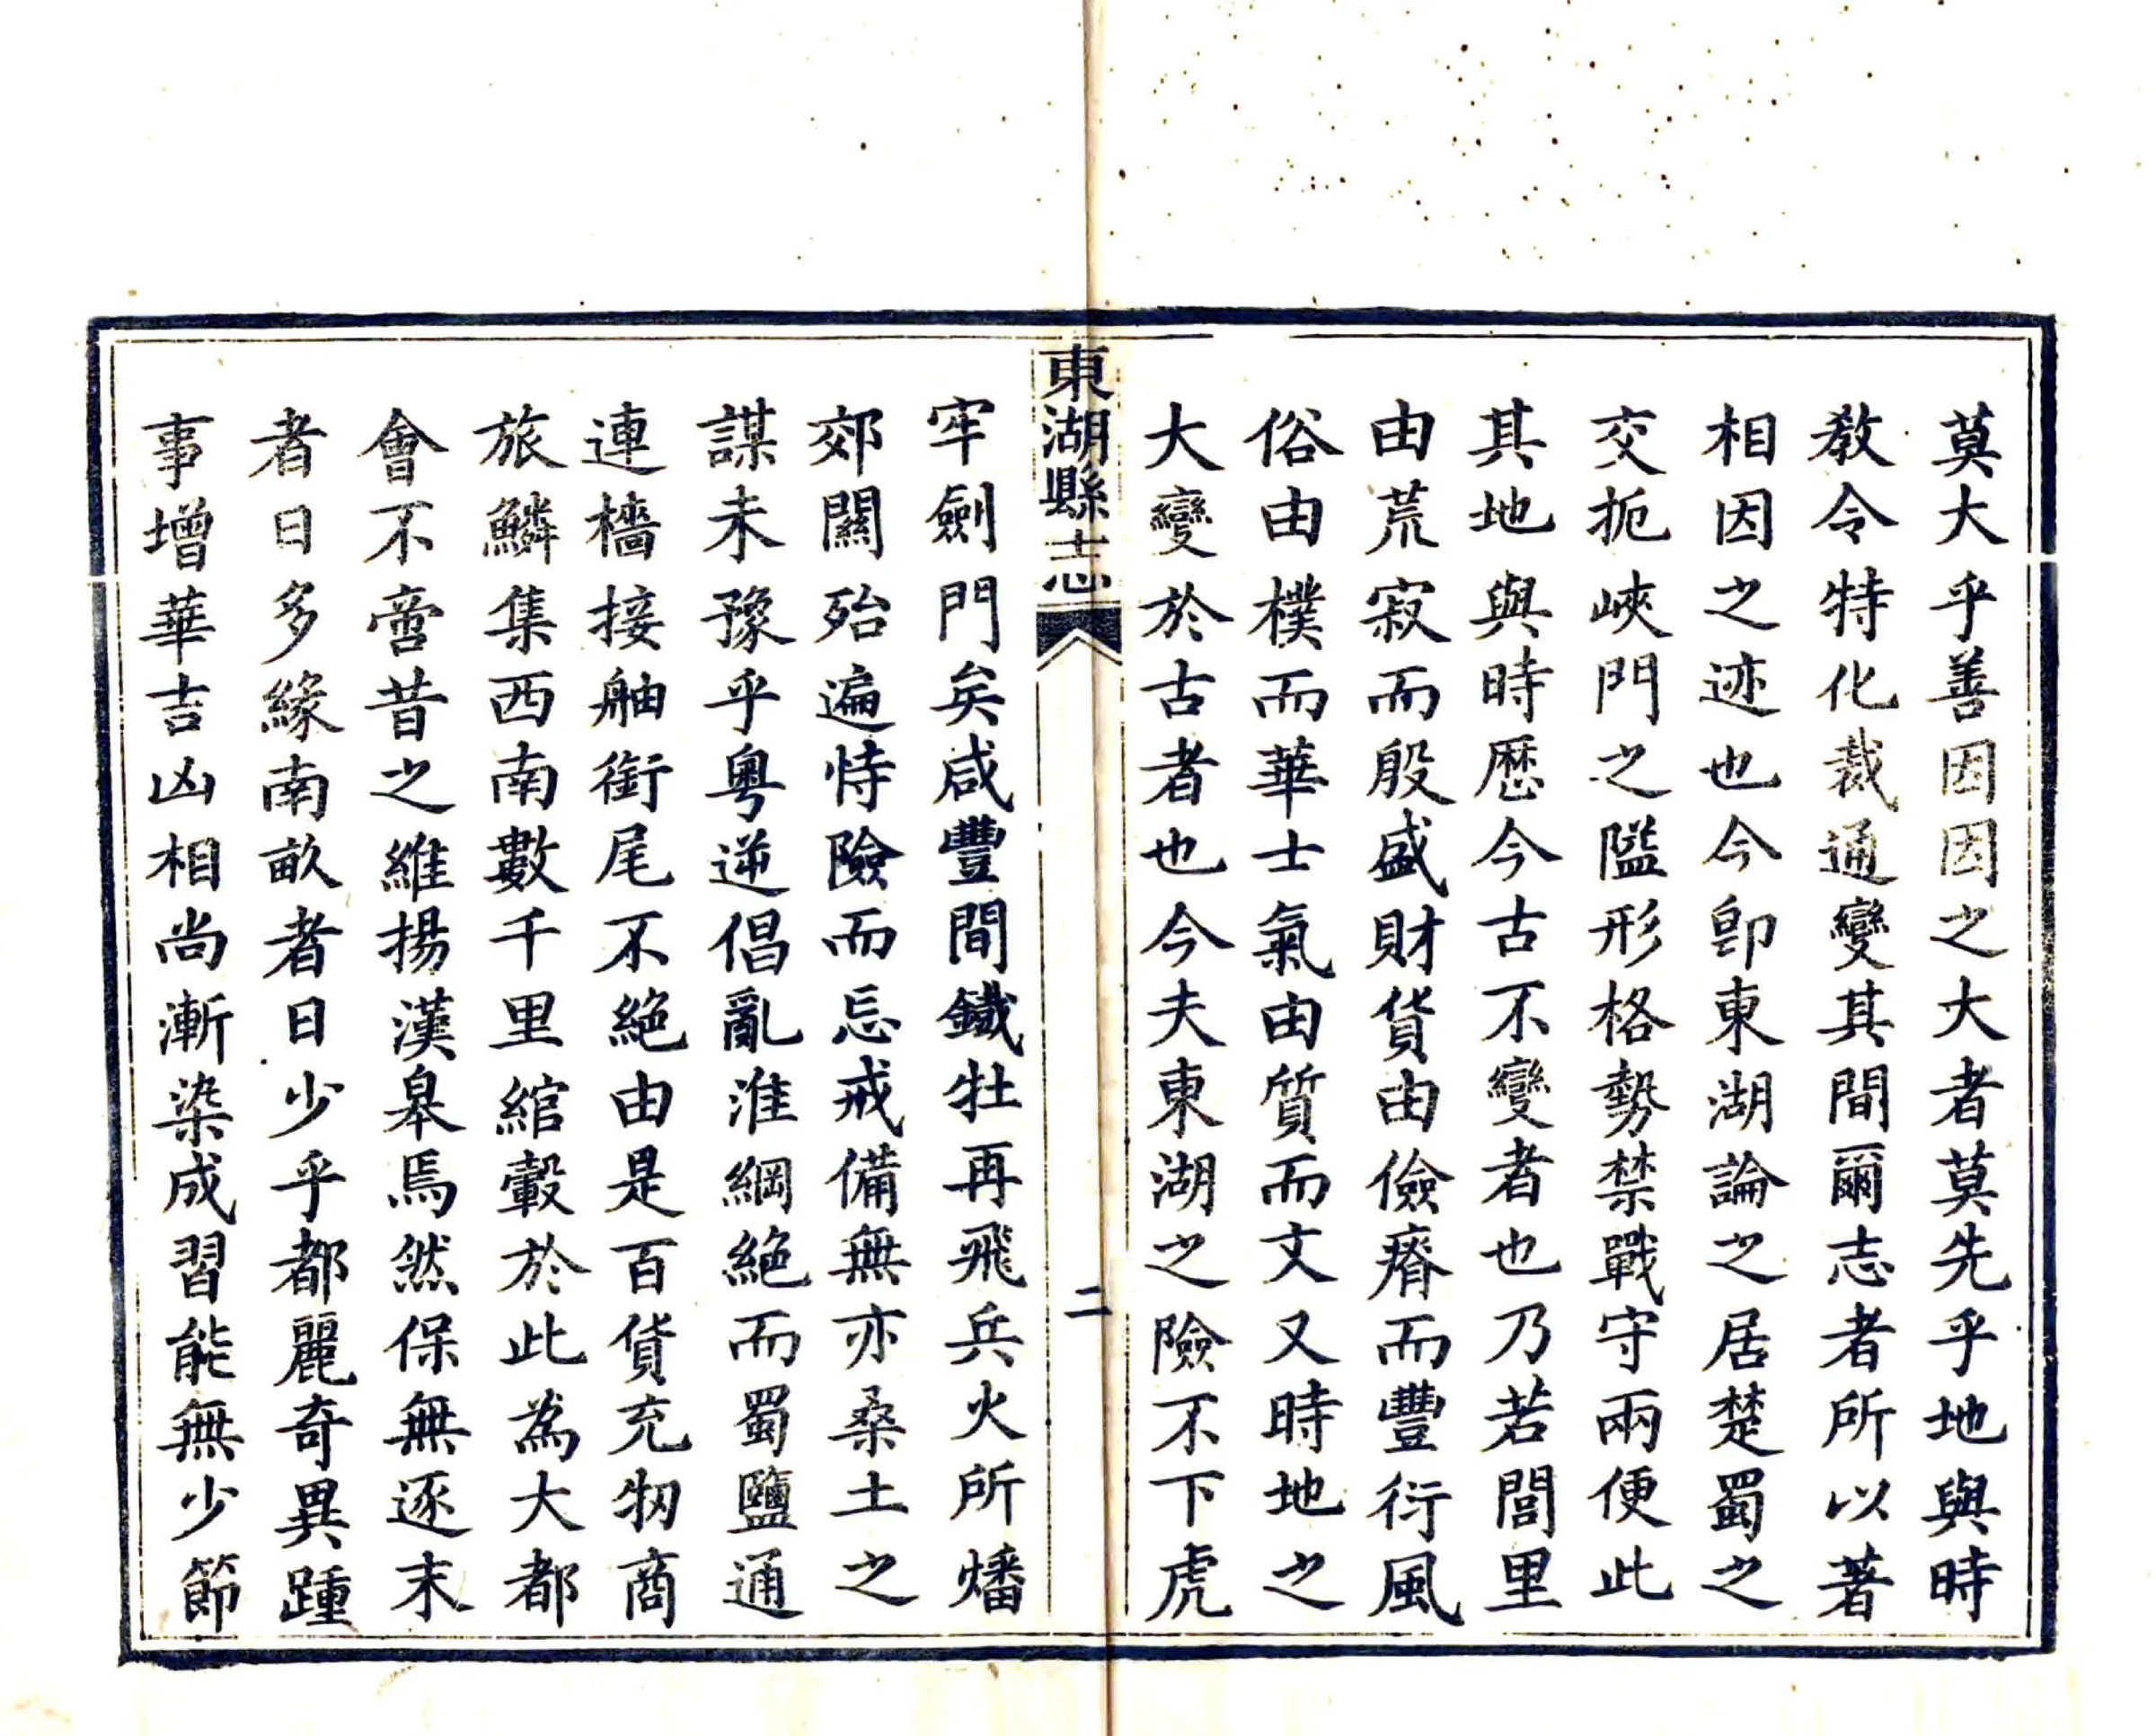 莫大乎善因因之大者莫先乎地與時
教令特化裁通變其間爾志者所以著
相因之迹也今卽東湖論之居楚蜀之
交扼峽門之隘形格勢禁戰守兩便此
其地與時歷今古不變者也乃若閭里
由荒寂而殷盛財貨由儉瘠而豐衍風
俗由樸而華士氣由質而文又時地之
大變於古者也今夫東湖之險不下虎
東湖縣志
二
牢劍門矣咸豐間鐵牡再飛兵火所燔
郊關殆遍恃險而忘戒備無亦桑土之
謀未豫乎粤逆倡亂淮綱絕而蜀鹽通
連檣接舳銜尾不絕由是百貨充牣商
旅鱗集西南數千里綰轂於此為大都
會不啻昔之維揚漢皋焉然保無逐末
者日多緣南畝者日少乎都麗奇異踵
事增華吉凶相尚漸染成習能無少節